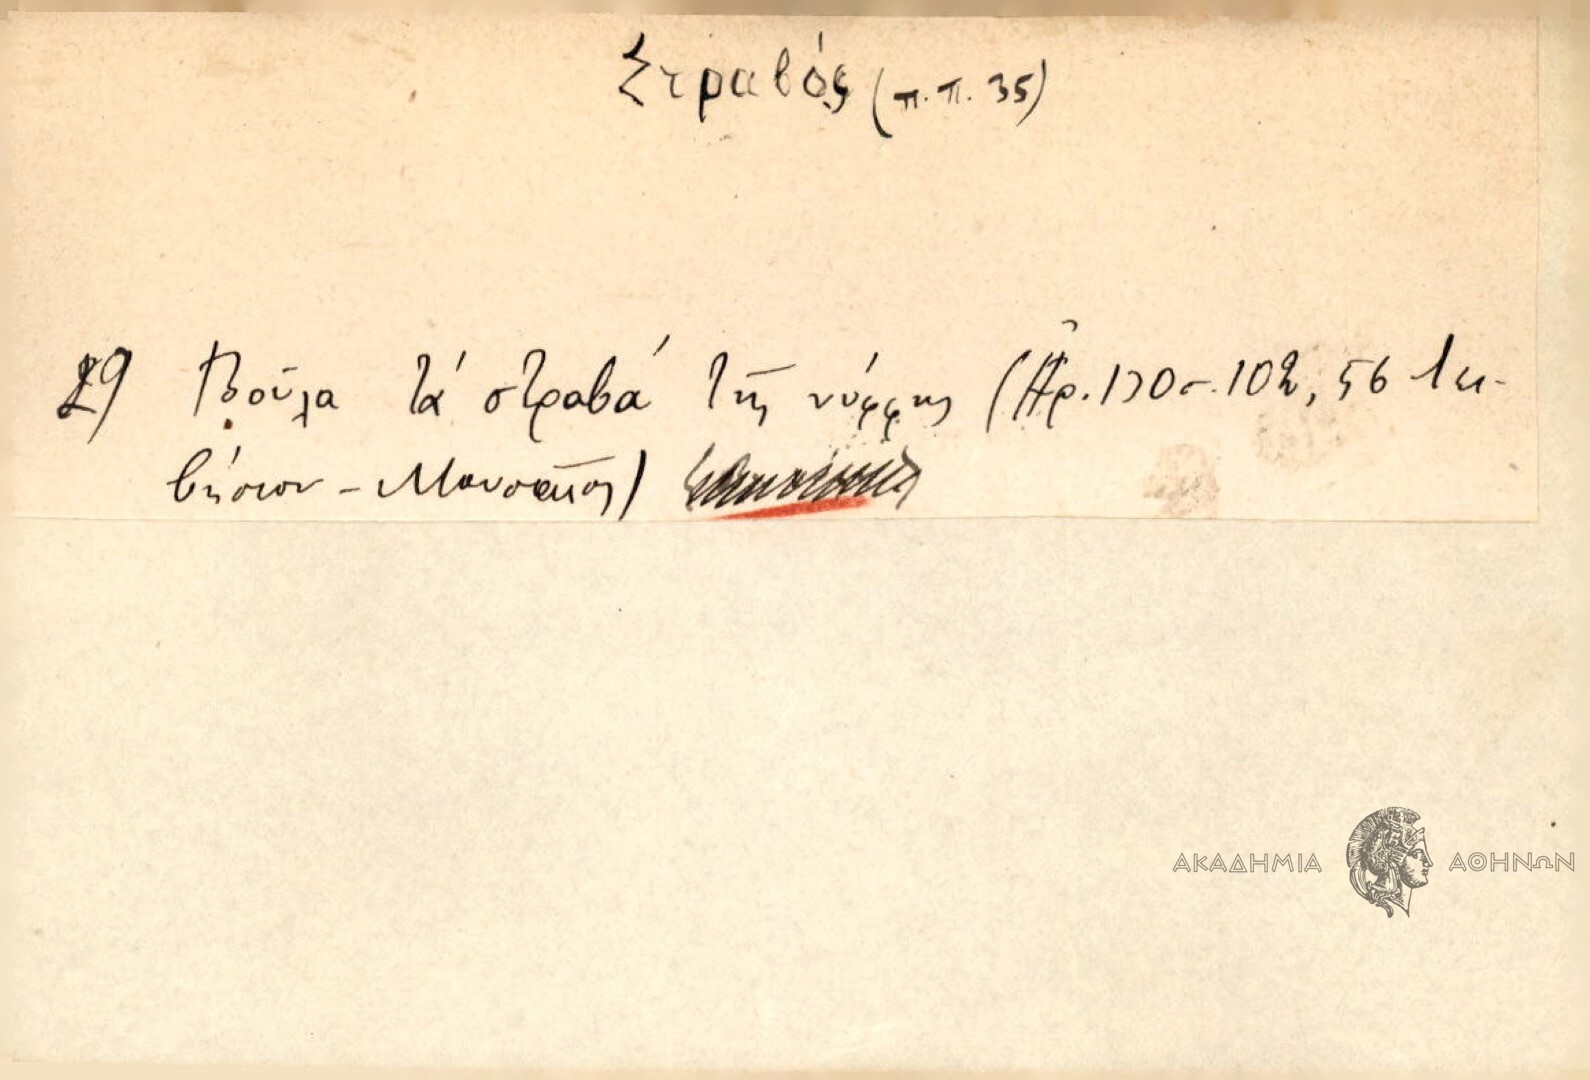 Στραβός (π.π. 35)
29 Βούλα τά στραβά τῆς νύφφης (Ἀρ. 130 σ. 102, 56 Λι-
βήσιον - Μουσαῖος)
ΑΚΑΔΗΜΙΑ ΑΘΗΝΩΝ